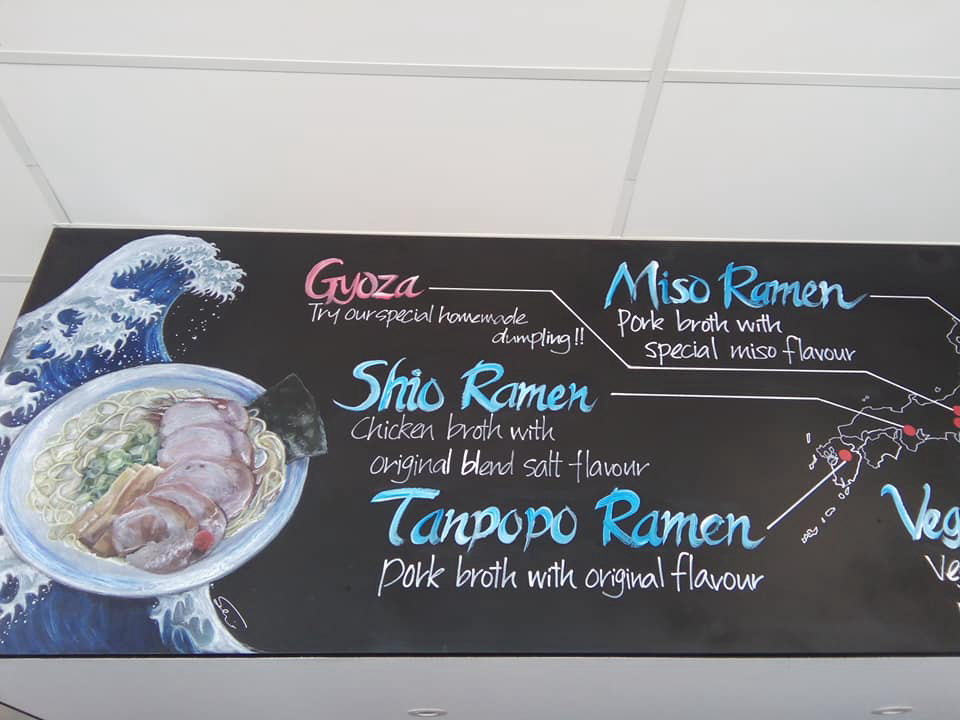 Gyoza
Try our special homemade
dumpling!!
Miso Ramen
Pork broth with
special miso flavour
Shio Ramen
Chicken broth with
original blend salt flavour
Tanpopo Ramen
Pork broth with original flavour
Veg
Ve